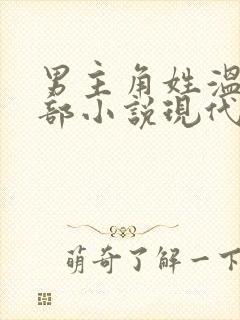 男主角姓溫
部小說現代
萌奇了解一下